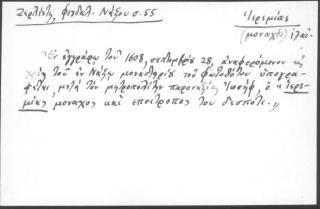 Ζερλέντη, Φεουδαλ. Νάξου σ. 55
Ἱερεμίας
(μοναχὸς)
"Ἐν ἐγγράφῳ τοῦ 1608, σεπτεμβρίου 28, ἀναφερόμενον εἰς
τοῦ ἐν Νάξῳ μοναστηρίου τοῦ Φωτοδότου ὑπογρά-
φεται, μετὰ τὸν μητροπολίτην παροναξίας Ἰωσήφ, ὁ "ἱερε-
μίας μοναχὸς καὶ ἐπίτροπος του δεσπότι."